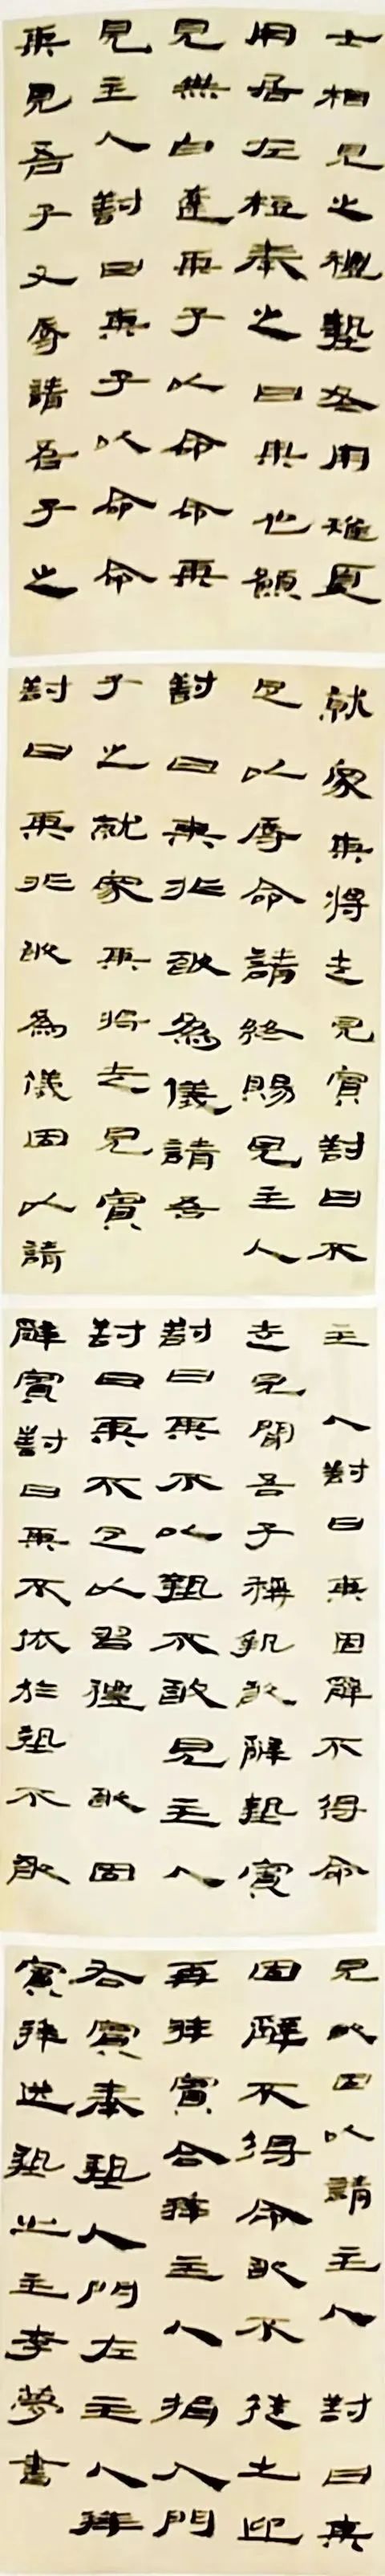 士相見之禮摯冬用雉夏
用居左桓奉之曰某也願
見無由達某子以命命某
見主人對曰某子以命命
某見吾子又辱請吾子之
就家某將走見賓對曰不
足以辱命請終賜見主人
對曰某非敢為儀請吾
子之就家某將走見賓
對曰某非敢為儀固以請
主人對曰某固辭不得命
走見聞吾子稱執敢辭摯賓
對曰某不以摯不敢見主人
對曰某不足以習禮敢固
辭賓對曰某不依於摯不敢
見敢固以請主人對曰某
固辭不得命敢不從出迎
再拜賓合拜主人揖入門
右賓奉摯入門左主人拜
賓拜送摯出主李夢書